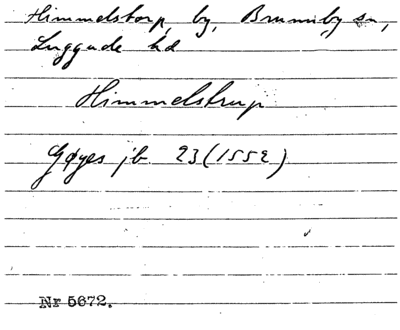 Himmelstorp, by, Brunnby sn,
Luggude hd
Himmelstrup
Gøyes jb 23 (1552)
Nr 5672.